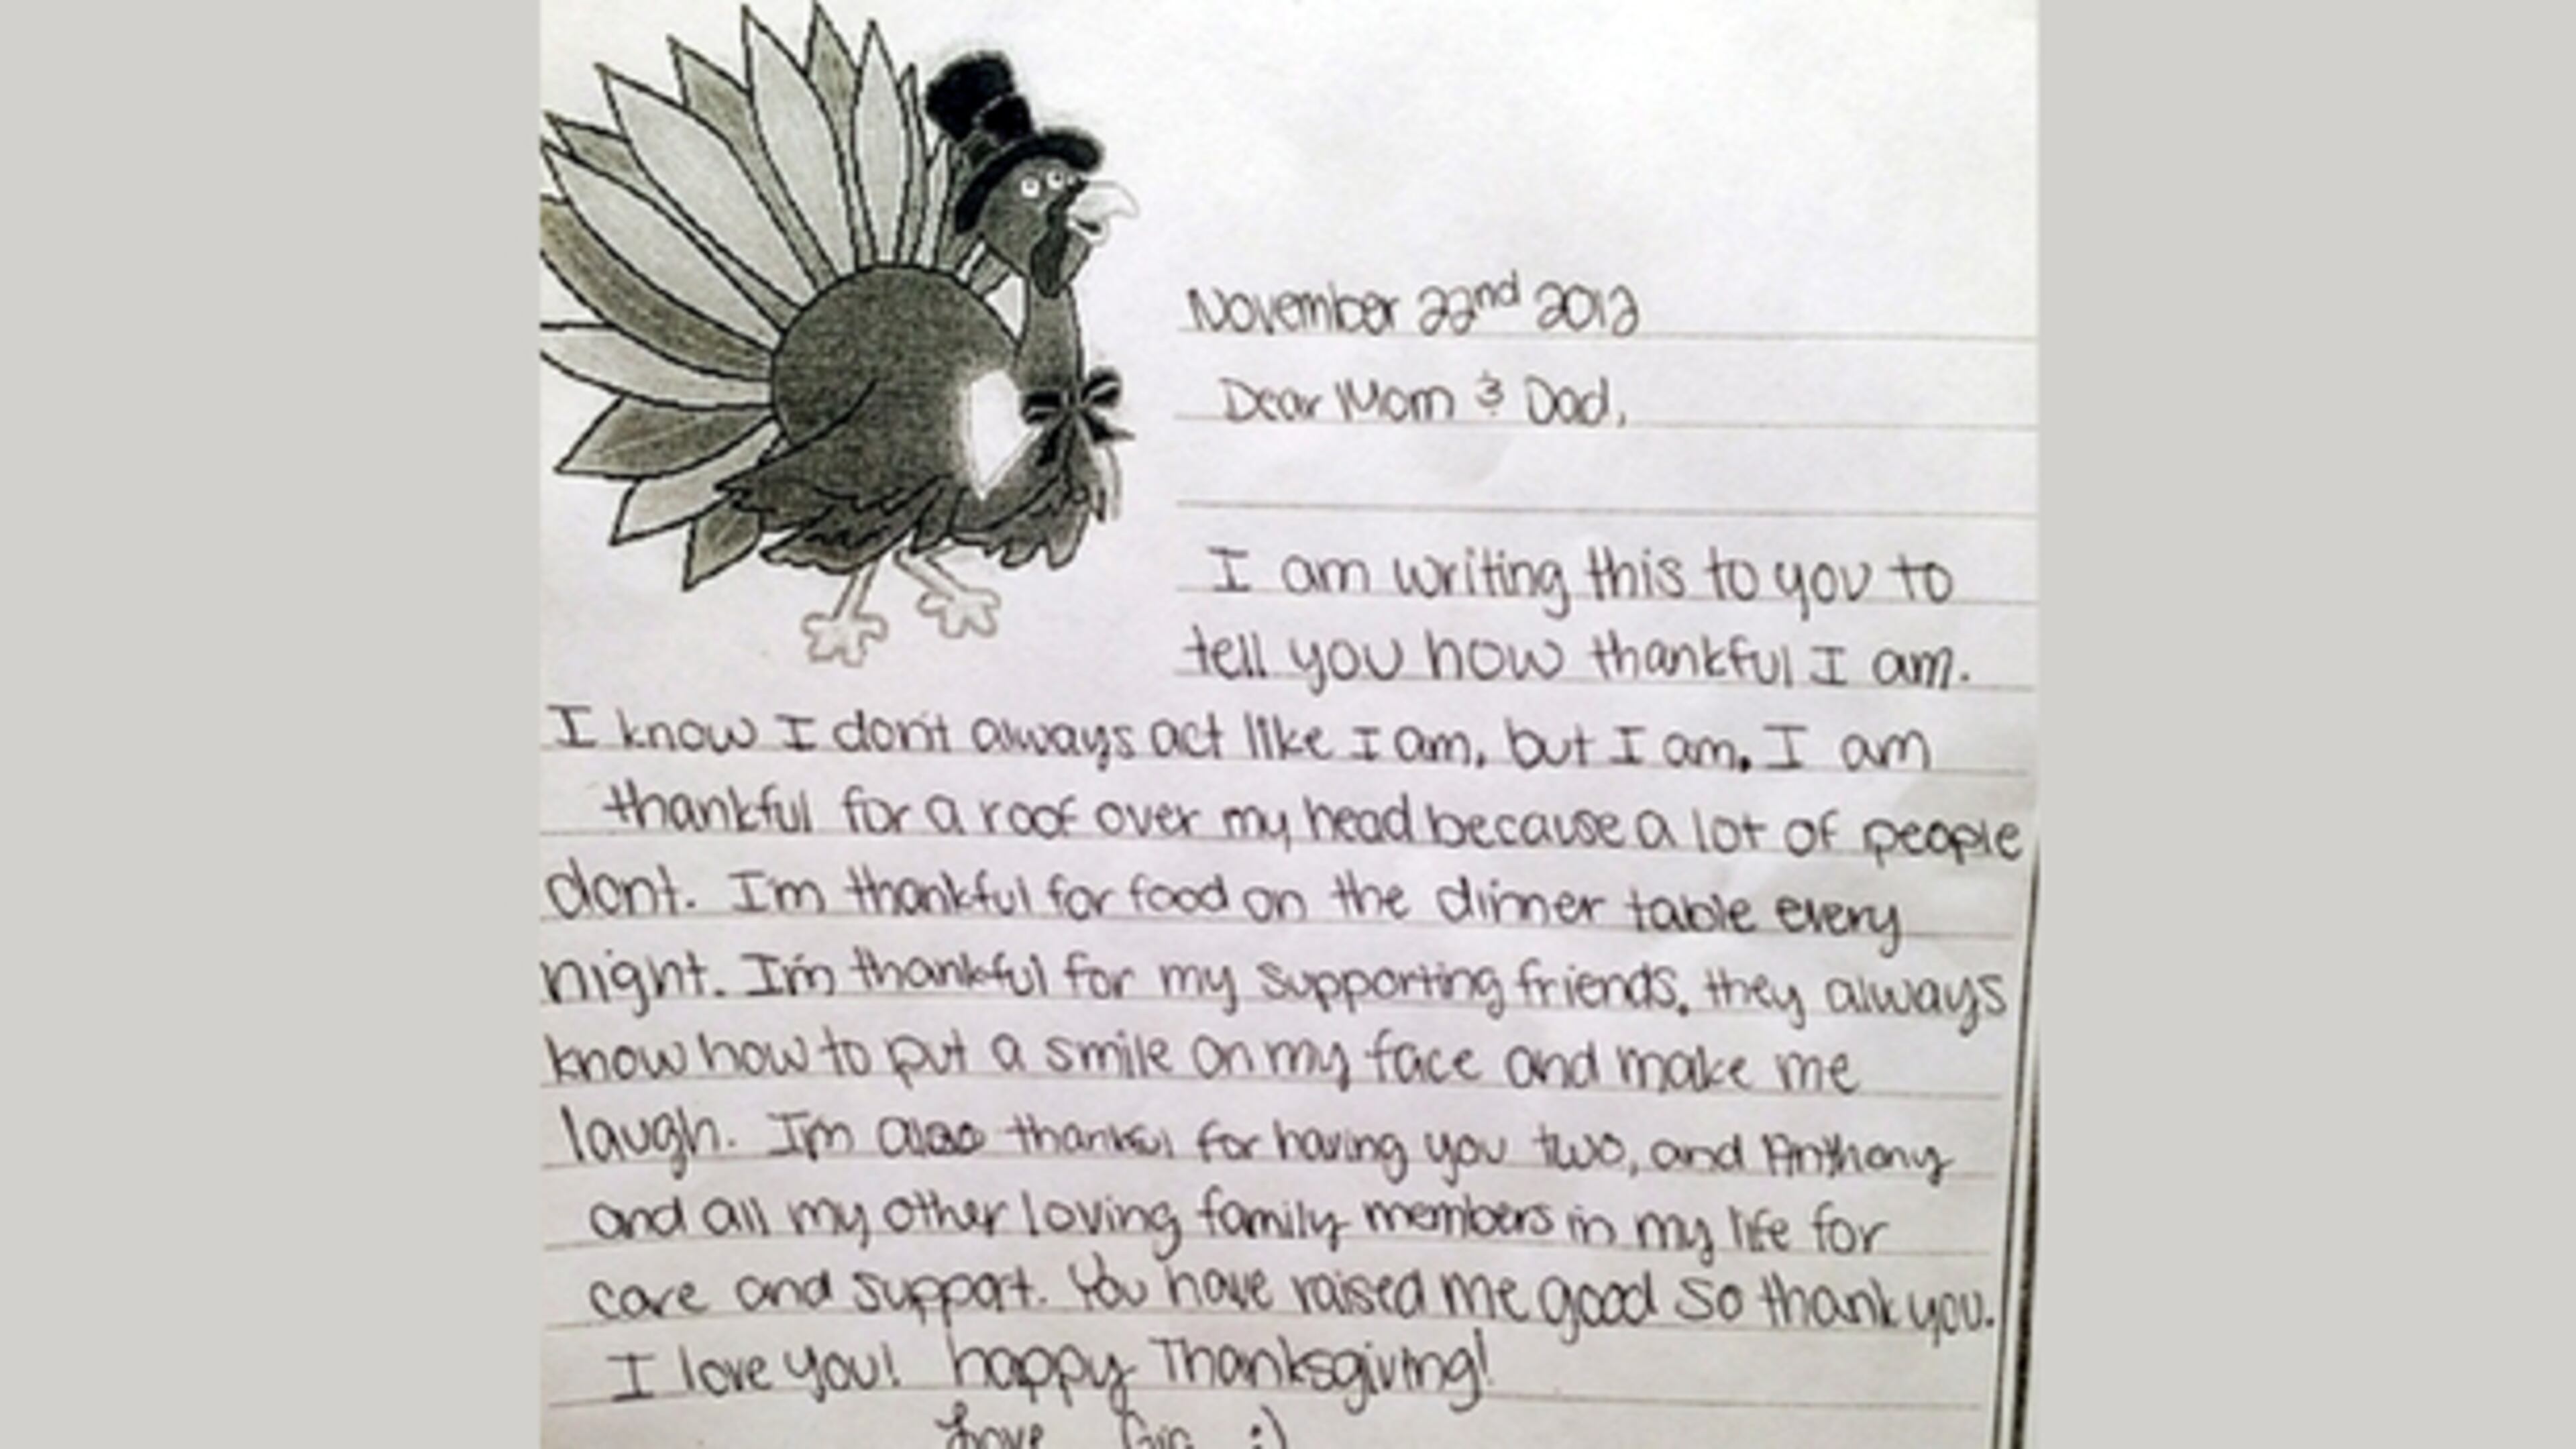 November 22nd 2012
Dear Mom & Dad,
I am writing this to you to
tell you how thankful I am.
I know I don't always act like I am, but I am. I am
thankful for a roof over my head because a lot of people
dont. I'm thankful for food on the dinner table every
night. I'm thankful for my supporting friends. they always
know how to put a smile on my face and make me
laugh. I'm also thankful for having you two, and Anthony
and all my other loving family members in my life for
care and support. You have raised me good so thank you.
I love you! happy Thanksgiving!
Love :)